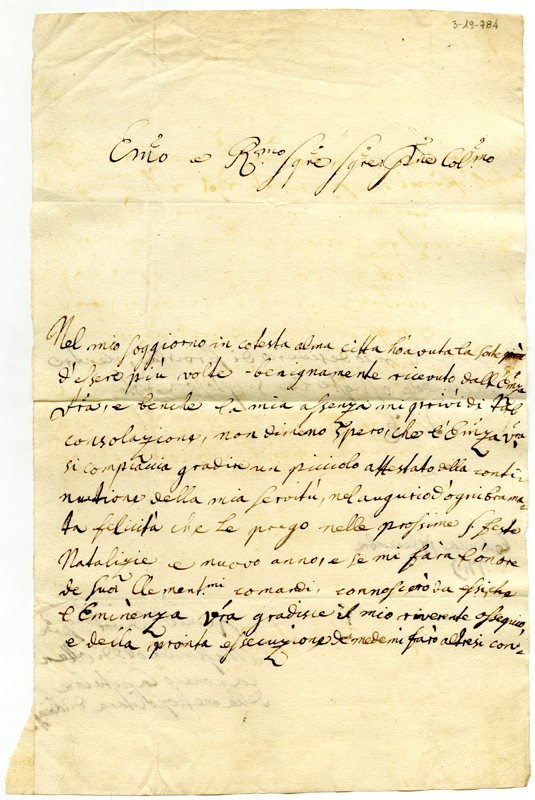 3-19-784
Em̃o e R.mo Sig.re Sig.re P̃ne Col.mo
Nel mio soggiorno in cotesta alma città hò avuta la sorte
d'essere più volte benignamente ricevuto dall'Emĩza
Vr̃a, e benche la mia assenza mi privi di tal
consolazione, non dimeno spero, che l'Emĩza Vr̃a
si compiaccia gradire un picciolo attestato della conti-
nuatione della mia servitù, nel augurio d'ogni brama-
ta felicità che le prego nelle prossime S. feste
Natalizie e nuovo anno, e se mi farà l'onore
de suoi Clement.mi comandi, connoscerò da essi che
l'Eminenza Vr̃a gradisce il mio riverente ossequio,
e della pronta essecuzione de medemi farò altresi con-